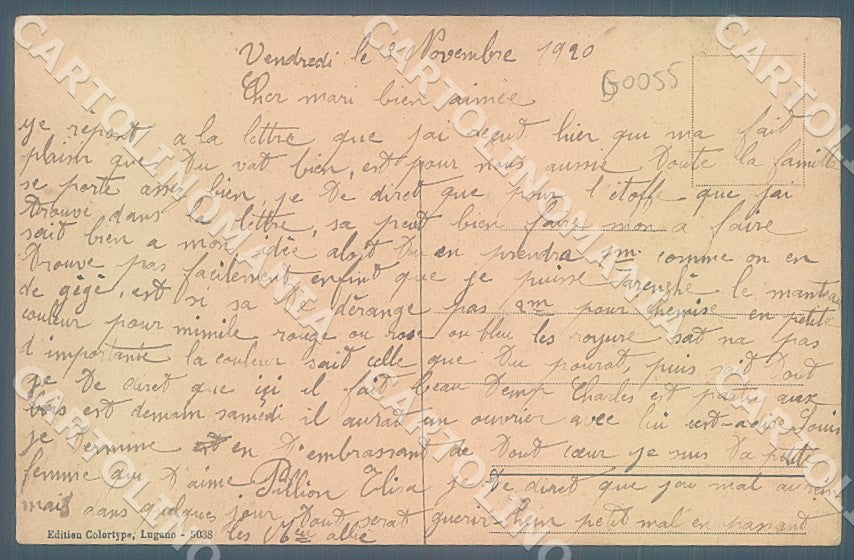 Vendredi le Novembre 1920
G0055
Cher mari bien aimée
Je repont a la lettre que jai recut hier qui ma fait
plaim que Du vat bien, est pour nous aussie Doute la famille
se porte assez bien, je De diret que pour l'étoffe que jai
trouvé dans la lettre, sa peut bien faire mon a faire
sait bien a mon idée alort Du en prendra 1m comme on en
Drouve pas facilement enfint que je puisse arenghé le manteau
de gégé, est si sa te dérange pas 2m pour chemise en petite
couleur pour mimile rouge ou rose ou bleu les royure sat na pas
d'importante la couleur sait celle que Du pourat, puis sait Dout
je De diret que içi il fait beau Demp Charles est partit aux
bois est demain samedi il aurat un ouvrier avec lui cert-adire Louis
je Dermine en D'embrassant de Dout cœur je suis Da petite
femme qui D'aime Pillion Elisa je De diret que jau mal au sein
mais dans quelques jour Dout serat guérir Rhem petit mal en passant
les
Edition Colortype, Lugano - 5038
CARTOLINOMANIA